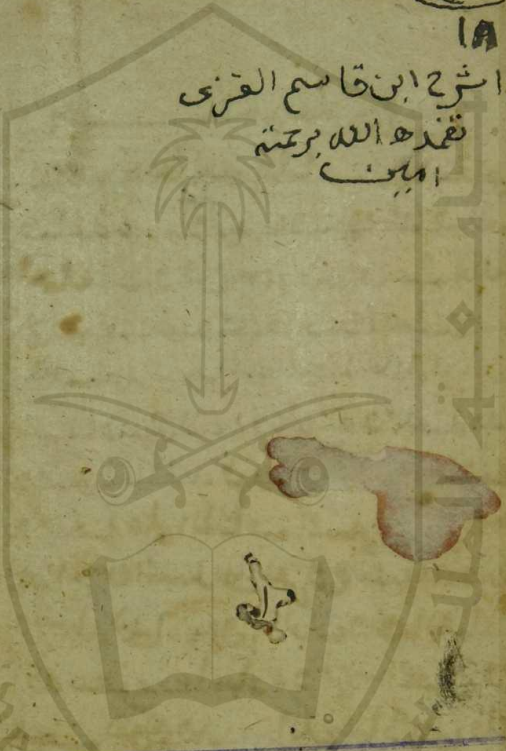 شرح ابن قاسم الغزى
تغمده الله برحمته
امين